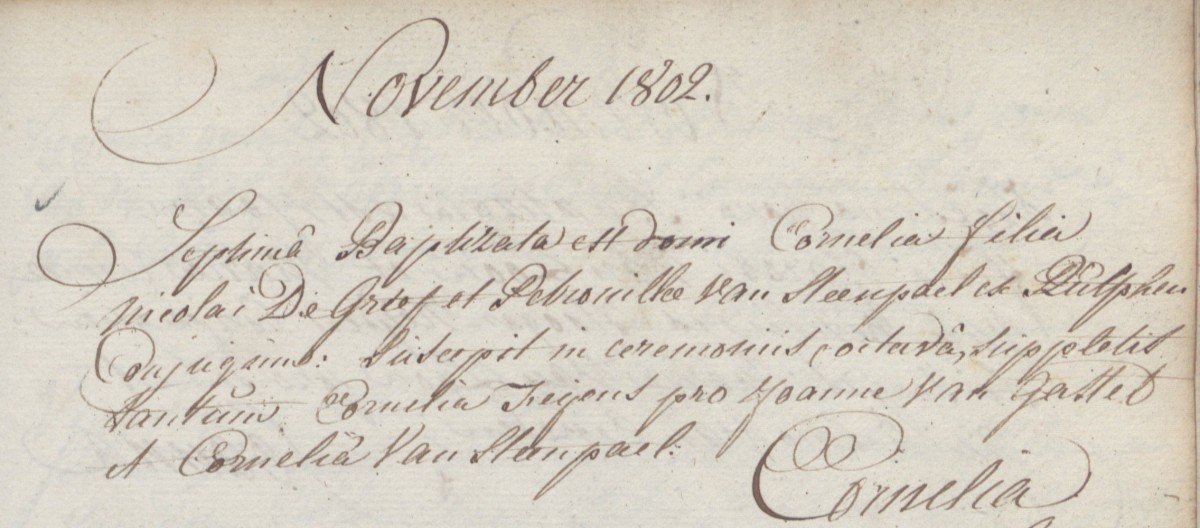 November 1802.
Septimâ Baptizata est domi Cornelia filia
Nicolai De Grief et Petronillæ Van Steenpael ex Zulphen
Conjugum: Suscepit in ceremoniis octavâ, suppletis
tantùm Cornelia Feijens pro Joanne Van Gastel
et Corneliâ Van Steenpael.
Cornelia